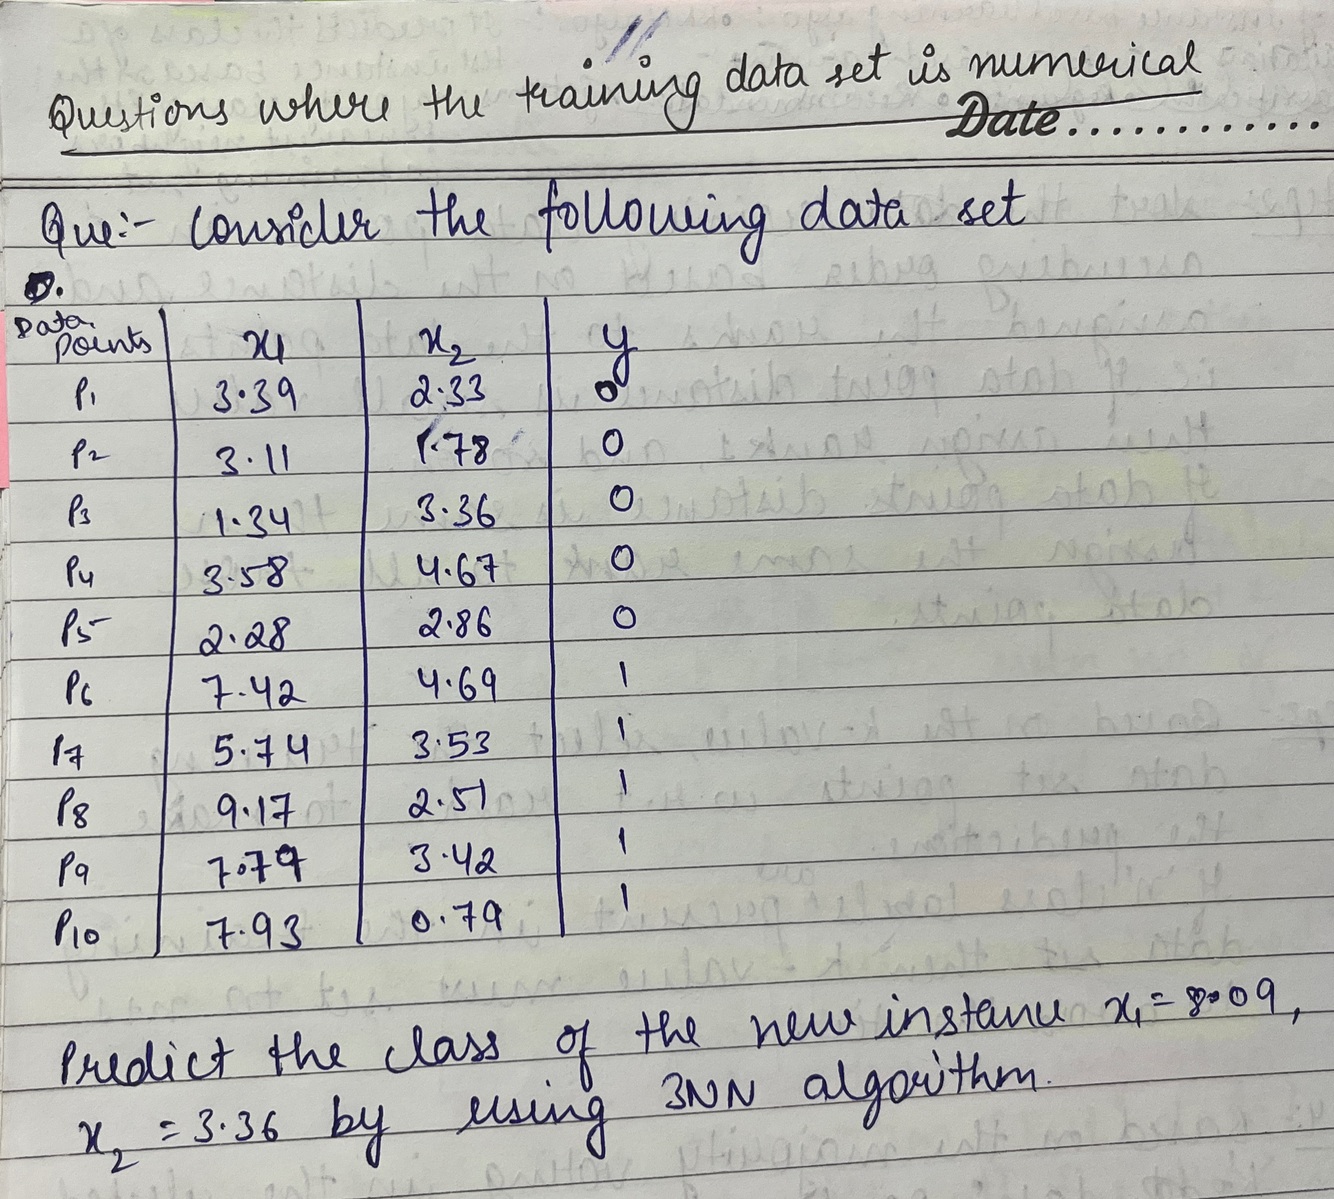 Questions where the training data set is numerical
Date.............
Que:- Consider the following data set
Data Points x1 x2 y
P1 3.39 2.33 0
P2 3.11 1.78 0
P3 1.34 3.36 0
P4 3.58 4.67 0
P5 2.28 2.86 0
P6 7.42 4.69 1
P7 5.74 3.53 1
P8 9.17 2.51 1
P9 7.79 3.42 1
P10 7.93 0.79 1
Predict the class of the new instance x1 = 8.09,
x2 = 3.36 by using 3NN algorithm.